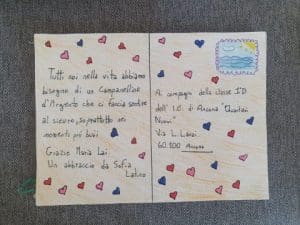 Tutti noi nella vita abbiamo
bisogno di un Campanellino
d'Argento che ci faccia sentire
al sicuro, soprattutto nei
momenti più bui.
Grazie Maria Lai.
Un abbraccio da Sofia
Latino
Ai compagni della classe 1°D
dell' I.C. di Ancona "Quartieri
Nuovi"
Via L. Lanzi
60.100 Ancona